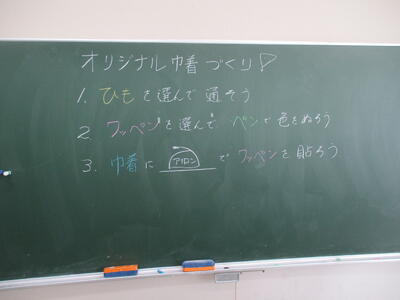 オリジナル巾着づくり!
1. ひもを選んで通そう
2. ワッペンを選んで ペンで色をぬろう
3. 巾着に アイロン でワッペンを貼ろう